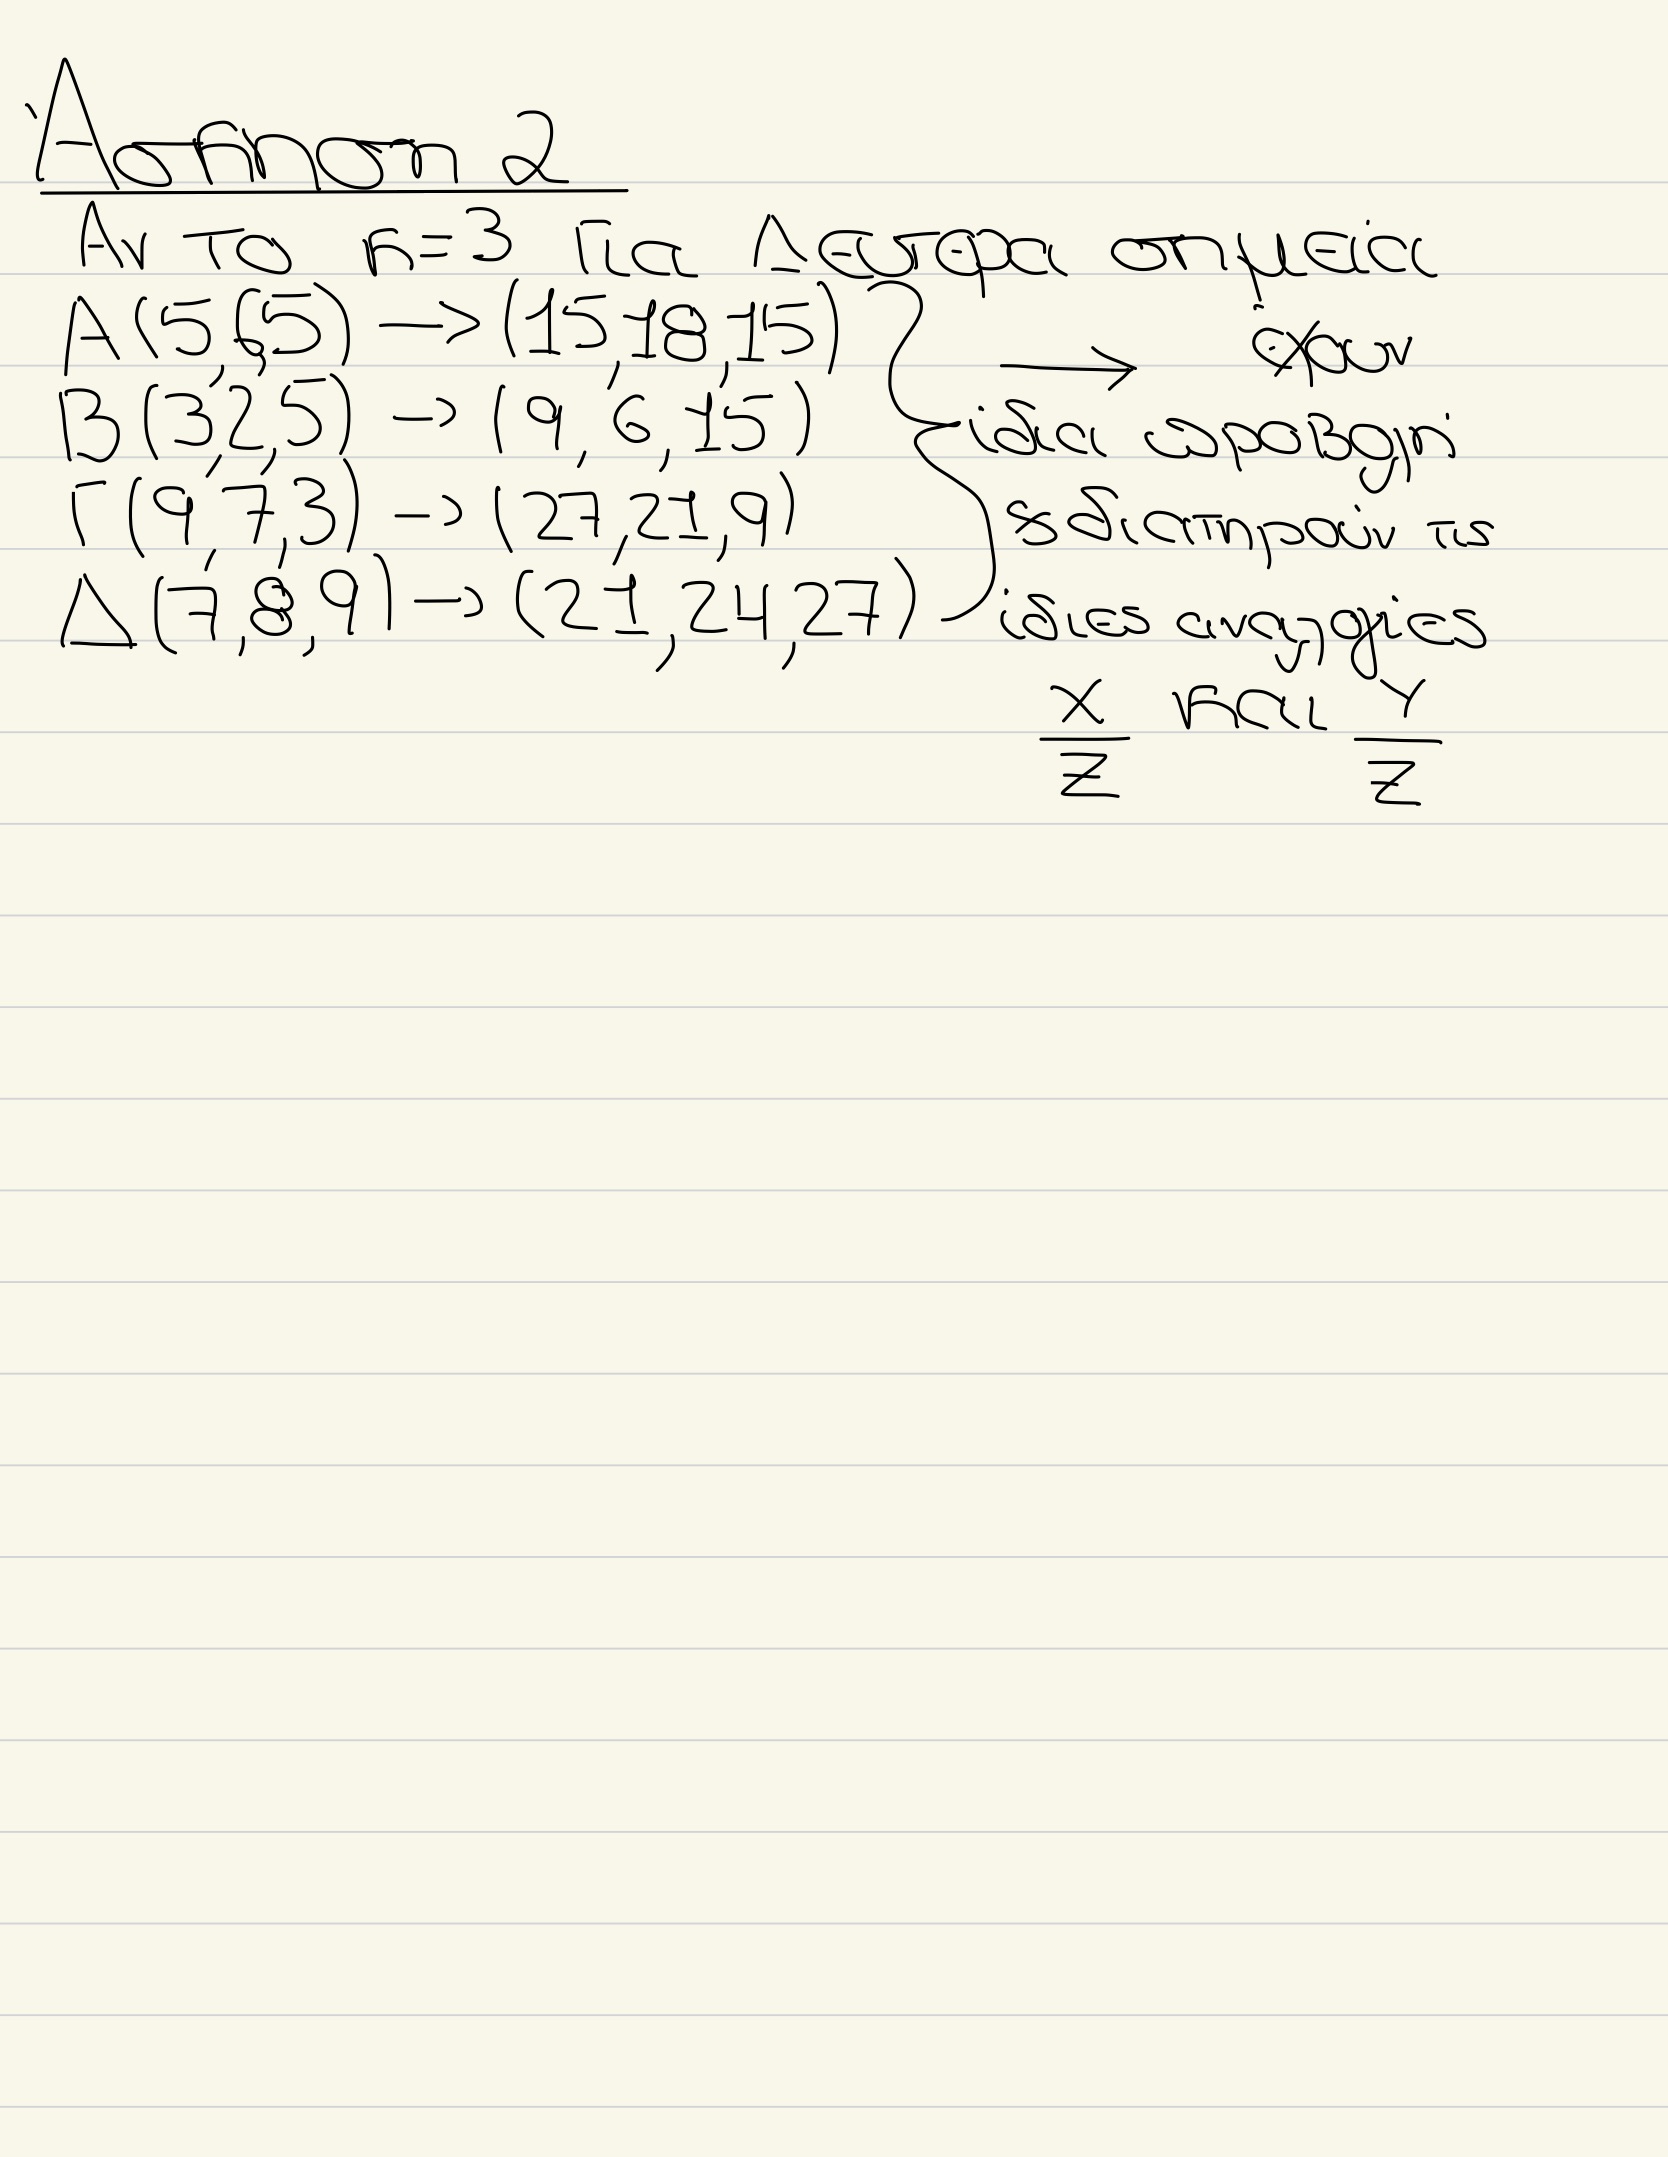 Άσκηση 2
Αν το κ=3 Για Δευτερα σημεία
A(5,6,5) —> (15,18,15)
B(3,2,5) —> (9,6,15)
Γ(9,7,3) —> (27,21,9)
Δ(7,8,9) —> (21,24,27)
—> έχουν
ίδια προβολή
& διατηρούν τις
ίδιες αναλογίες
X/Z και Y/Z